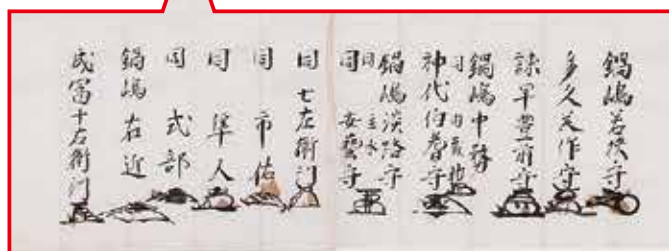 鍋嶋若狭守
多久美作守
諫早豊前守
鍋嶋中務
神代伯耆守
鍋嶋淡路守
同 主水
同 安藝守
同 七左衛門
同 市佑
同 隼人
同 式部
鍋嶋右近
成冨十右衛門